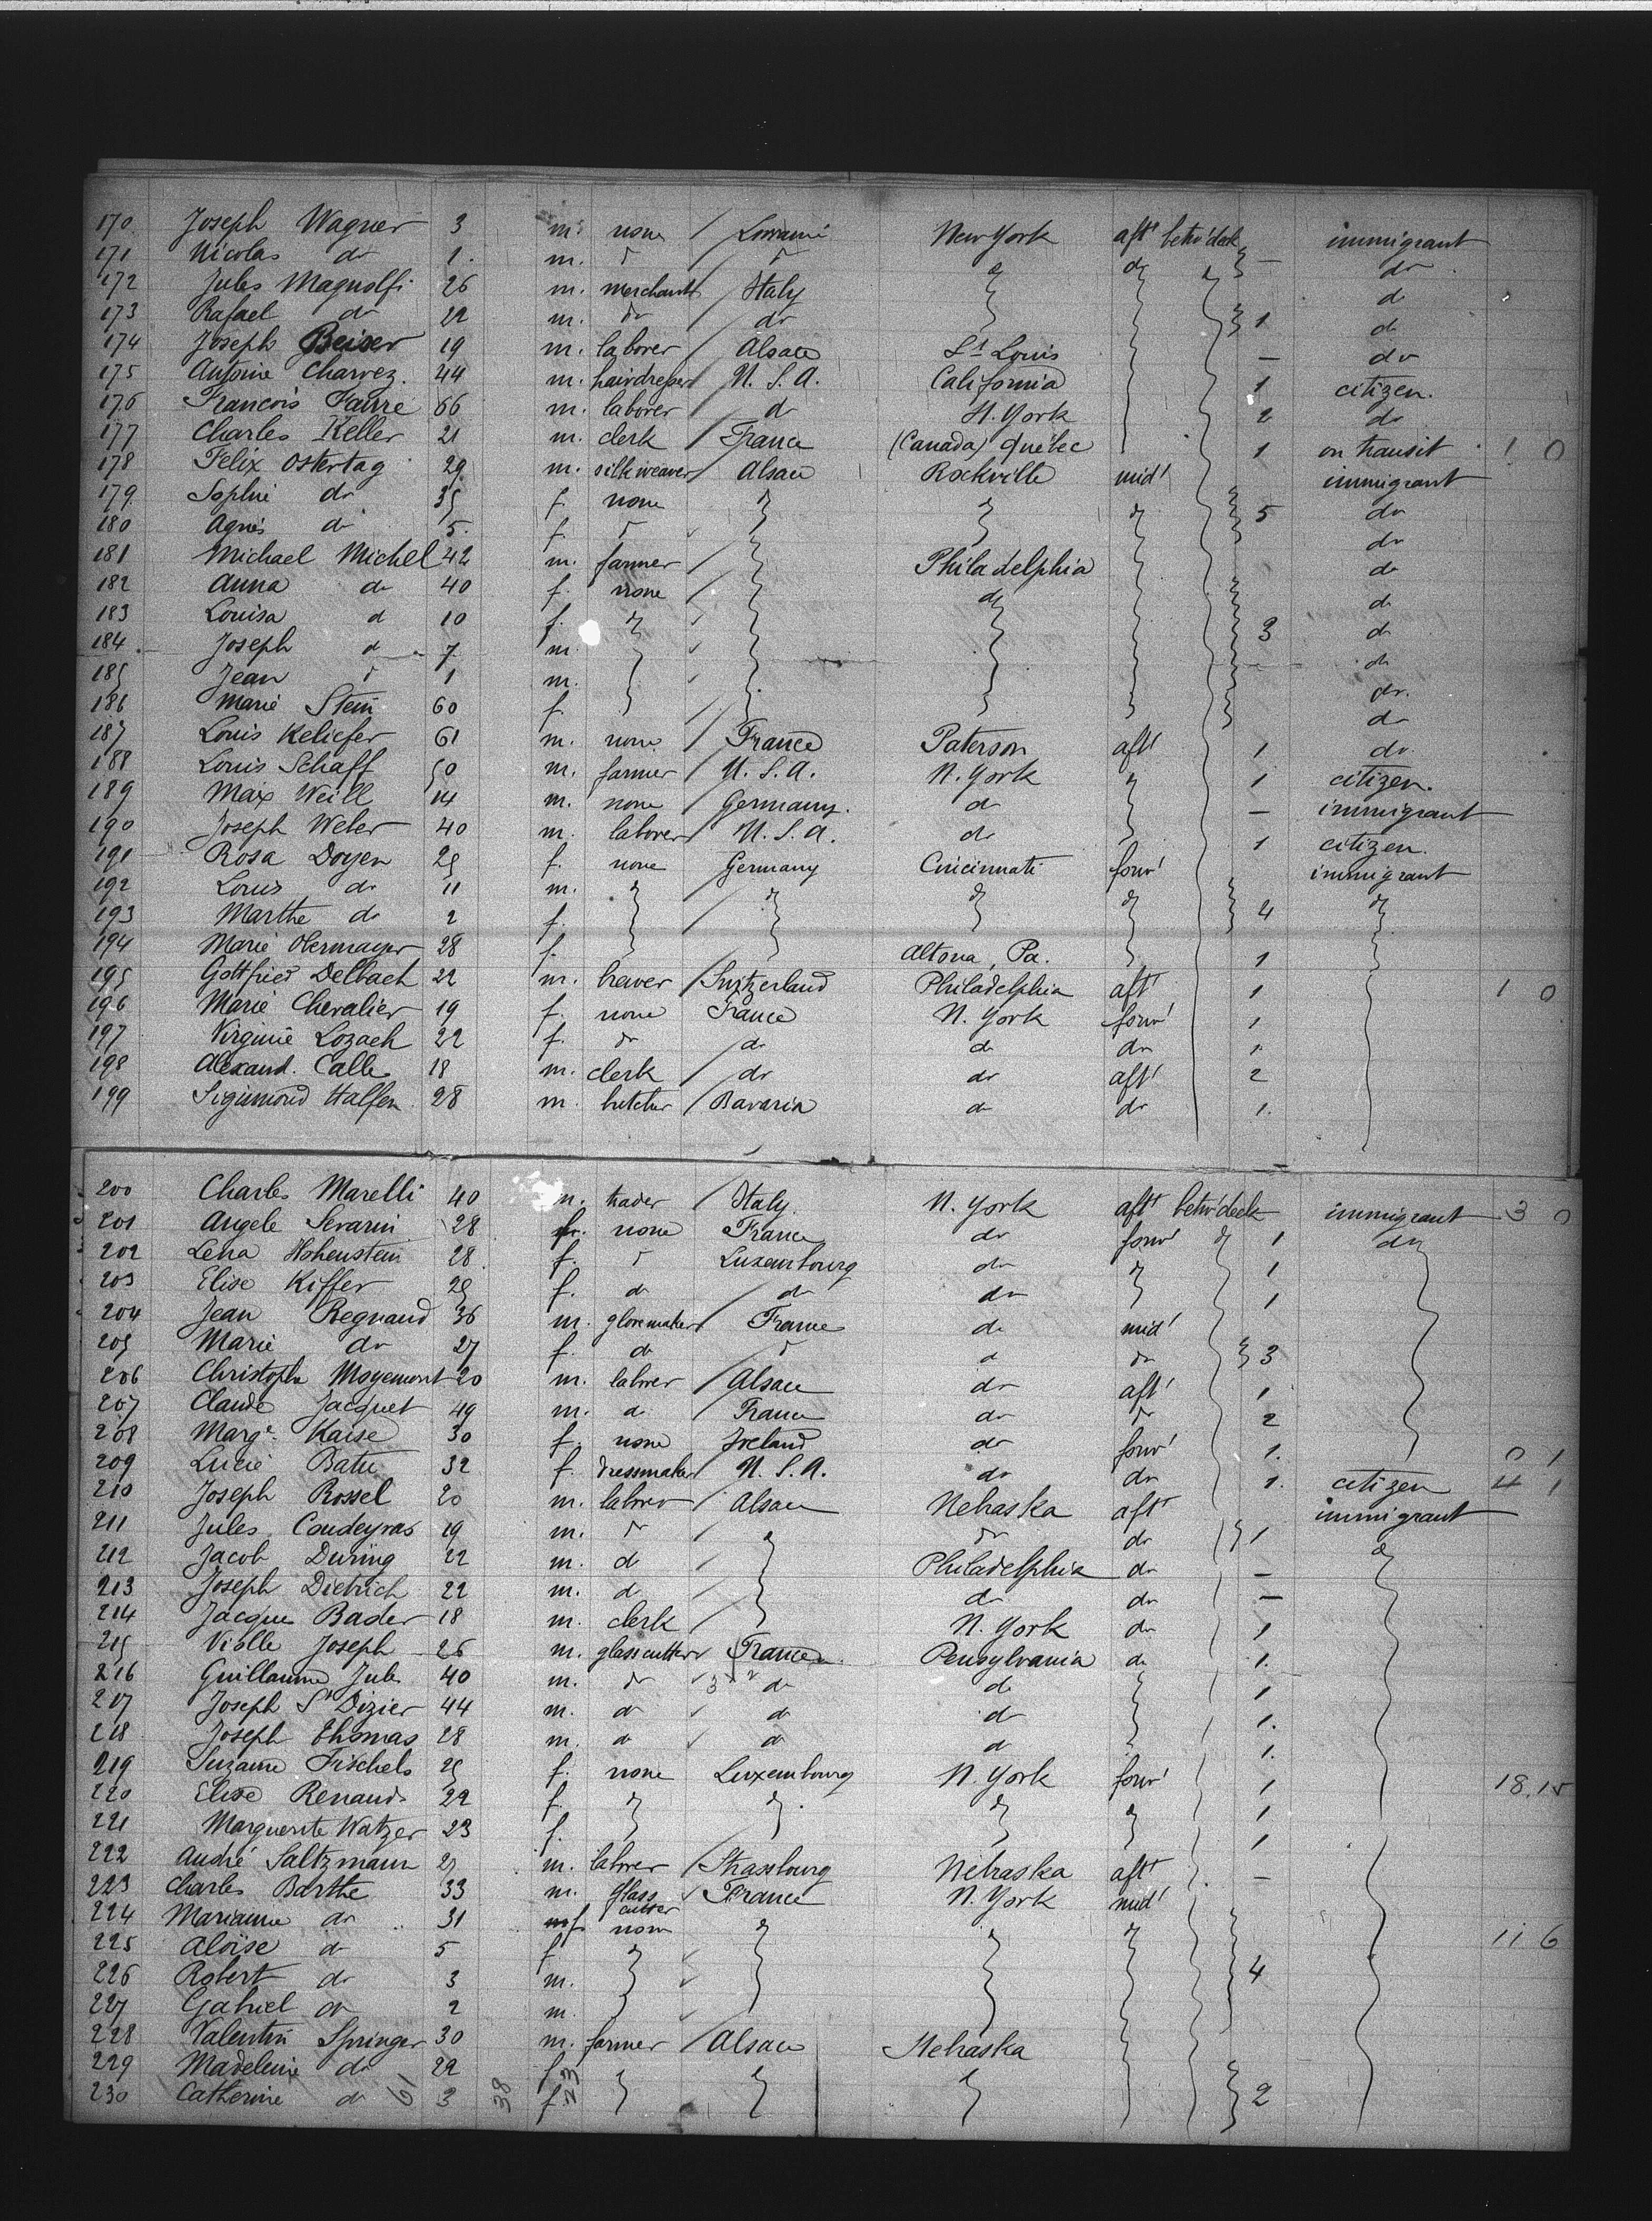 170 Joseph Wagner 3 m. none / Lorraine New York aft betw' deck immigrant
171 Nicolas do 1. m. do do do do — do
172 Jules Magnolfi 26 m. merchant / Italy d
173 Rafael do 22 m. do do 1 d
174 Joseph Beiser 19 m. laborer / Alsace St Louis — do
175 Antoine Charvez. 44 m. hairdresser / U. S. A. California 1 citizen.
176 Francois Faure 66 m. laborer / d N. York 2 do
177 Charles Keller 21 m. clerk / France (Canada) Québec 1 on transit 1 0
178 Felix Ostertag 29 m. silk weaver / Alsace Rockville mid' immigrant
179 Sophie do 35 f. none / do do do 5 do
180 Agnès d 5. f. do do
181 Michael Michel 42 m. farmer / Philadelphia do
182 Anna do 40 f. none / do d
183 Louisa d 10 f. do 3 d
184 Joseph d 7 m. do
185 Jean do 1 m. do.
186 Marie Stein 60 f. / do
187 Louis Keliefer 61 m. none / France Paterson aft' 1 do
188 Louis Schaff 50 m. farmer / U. S. A. N. York do 1 citizen.
189 Max Weill 14 m. none / Germany. do — immigrant
190 Joseph Weber 40 m. laborer / U. S. A. do 1 citizen.
191 Rosa Doyen 25 f. none / Germany Cincinnati forw' immigrant
192 Louis do 11 m. do / do do do do
193 Marthe do 2 f. / 4
194 Marie Obermayer 28 f. Altona, Pa. 1
195 Gottfried Delbach 22 m. heaver / Switzerland Philadelphia aft' 1 1 0
196 Marie Chevalier 19 f. none France N. York forw' 1
197 Virginie Lozach 22 f. do / do do do 1.
198 Alexand. Calle 18 m. clerk / do do aft' 2
199 Sigismond Halfen 28 m. butcher / Bavaria do do 1.
200 Charles Marelli 40 m. trader / Italy. N. York aft' betw' deck immigrant 3 0
201 Angele Severin 28 f. none / France do forw' do 1 do
202 Lena Hohenstein 28. f. do Luxembourg do do 1
203 Elise Kiffer 25 f. do / do do 1
204 Jean Regnaud 36 m. glovemaker / France do mid'
205 Marie do 27 f. do do d do 3
206 Christophe Moyemont 20 m. laborer / Alsace do aft' 1
207 Claude Jacquet 49 m. do / France do do 2
208 Marge. Kaise 30 f. none / Ireland do forw' 1. 0 1
209 Lucie Batu 32 f. dressmaker / U. S. A. do do 1. citizen 4 1
210 Joseph Rossel 20 m. laborer / Alsace Nebraska aft' immigrant
211 Jules Coudeyras 19 m. do / do do do 1 do
212 Jacob During 22 m. d / Philadelphia do —
213 Joseph Dietrich 22 m. d / do do —
214 Jacque Bader 18 m. clerk / N. York do 1
215 Violle Joseph 26 m. glasscutter / France Pensylvania do 1.
216 Guillaume Jules 40 m. do do do do 1
217 Joseph St Dizier 44 m. do do do 1.
218 Joseph Thomas 28 m. do do do 1.
219 Suzanne Fischels 25 f. none Luxembourg N. York forw' 1 18.15
220 Elise Renaud 22 f. do do. do do 1
221 Marguerite Watzer 23 f. 1
222 André Saltzmann 27 m. laborer / Strassbourg Nebraska aft' —
223 Charles Barthe 33 m. glass cutter France N. York mid'
224 Marianne do 31 f. none do do do 11 6
225 Aloïse do 5 f do 4
226 Robert do 3 m.
227 Gabriel do 2 m.
228 Valentin Springer 30 m. farmer / Alsace Nebraska
229 Madeleine do 22 f do do do
230 Catherine do 3 f 2
61 38 23